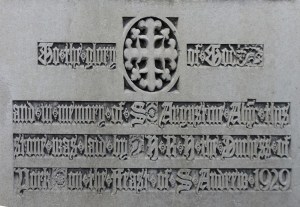 To the glory of God
and in memory of S Augustine Abp this
stone was laid by H R H the Duchess of
York on the feast of S Andrew 1929